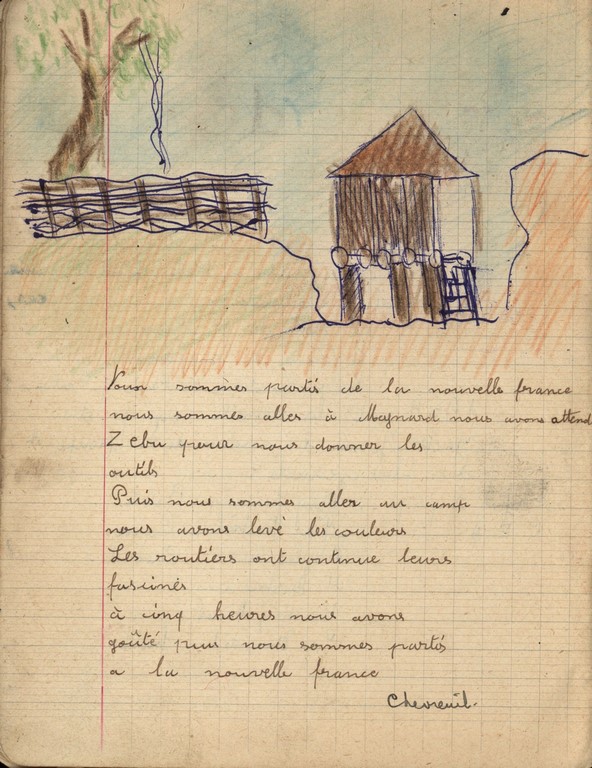 Nous sommes partis de la nouvelle france
nous sommes alles à Maynard nous avons attend
Zebu pour nous donner les
outils
Puis nous sommes aller au camp
nous avons levè les couleurs
Les routiers ont continue leurs
fascines
à cinq heures nous avons
goûté puis nous sommes partis
a la nouvelle france
Chevreuil.